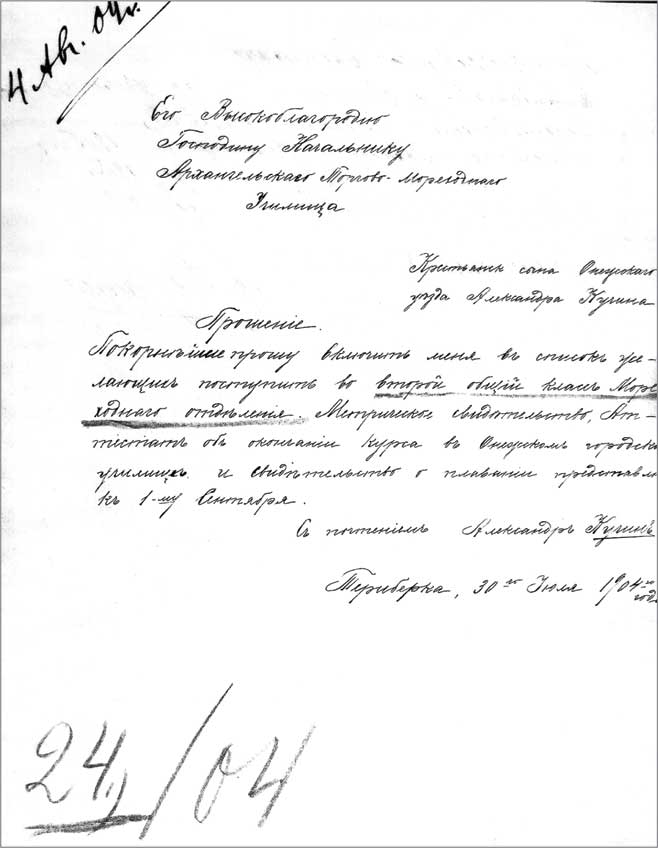 4 Авг. 04г.
Его Высокоблагородию
Господину Начальнику
Архангельскаго Торгово-Мореходнаго
Училища
Крестьянск сына Онежскаго
уезда Александра Кучина
Прошеніе.
Покорнѣйше прошу включить меня въ списокъ же-
лающихъ поступить во второй общій классъ Море
ходнаго отдѣленія. Метрическое свидѣтельство, Ат-
тестатъ объ окончаніи курса въ Онежскомъ городск
училищѣ и свидѣтельство о плаваніи представлю
къ 1-му Сентября.
Съ почтеніемъ Александръ Кучинъ
Териберка, 30го Іюля 1904го
год
24/04